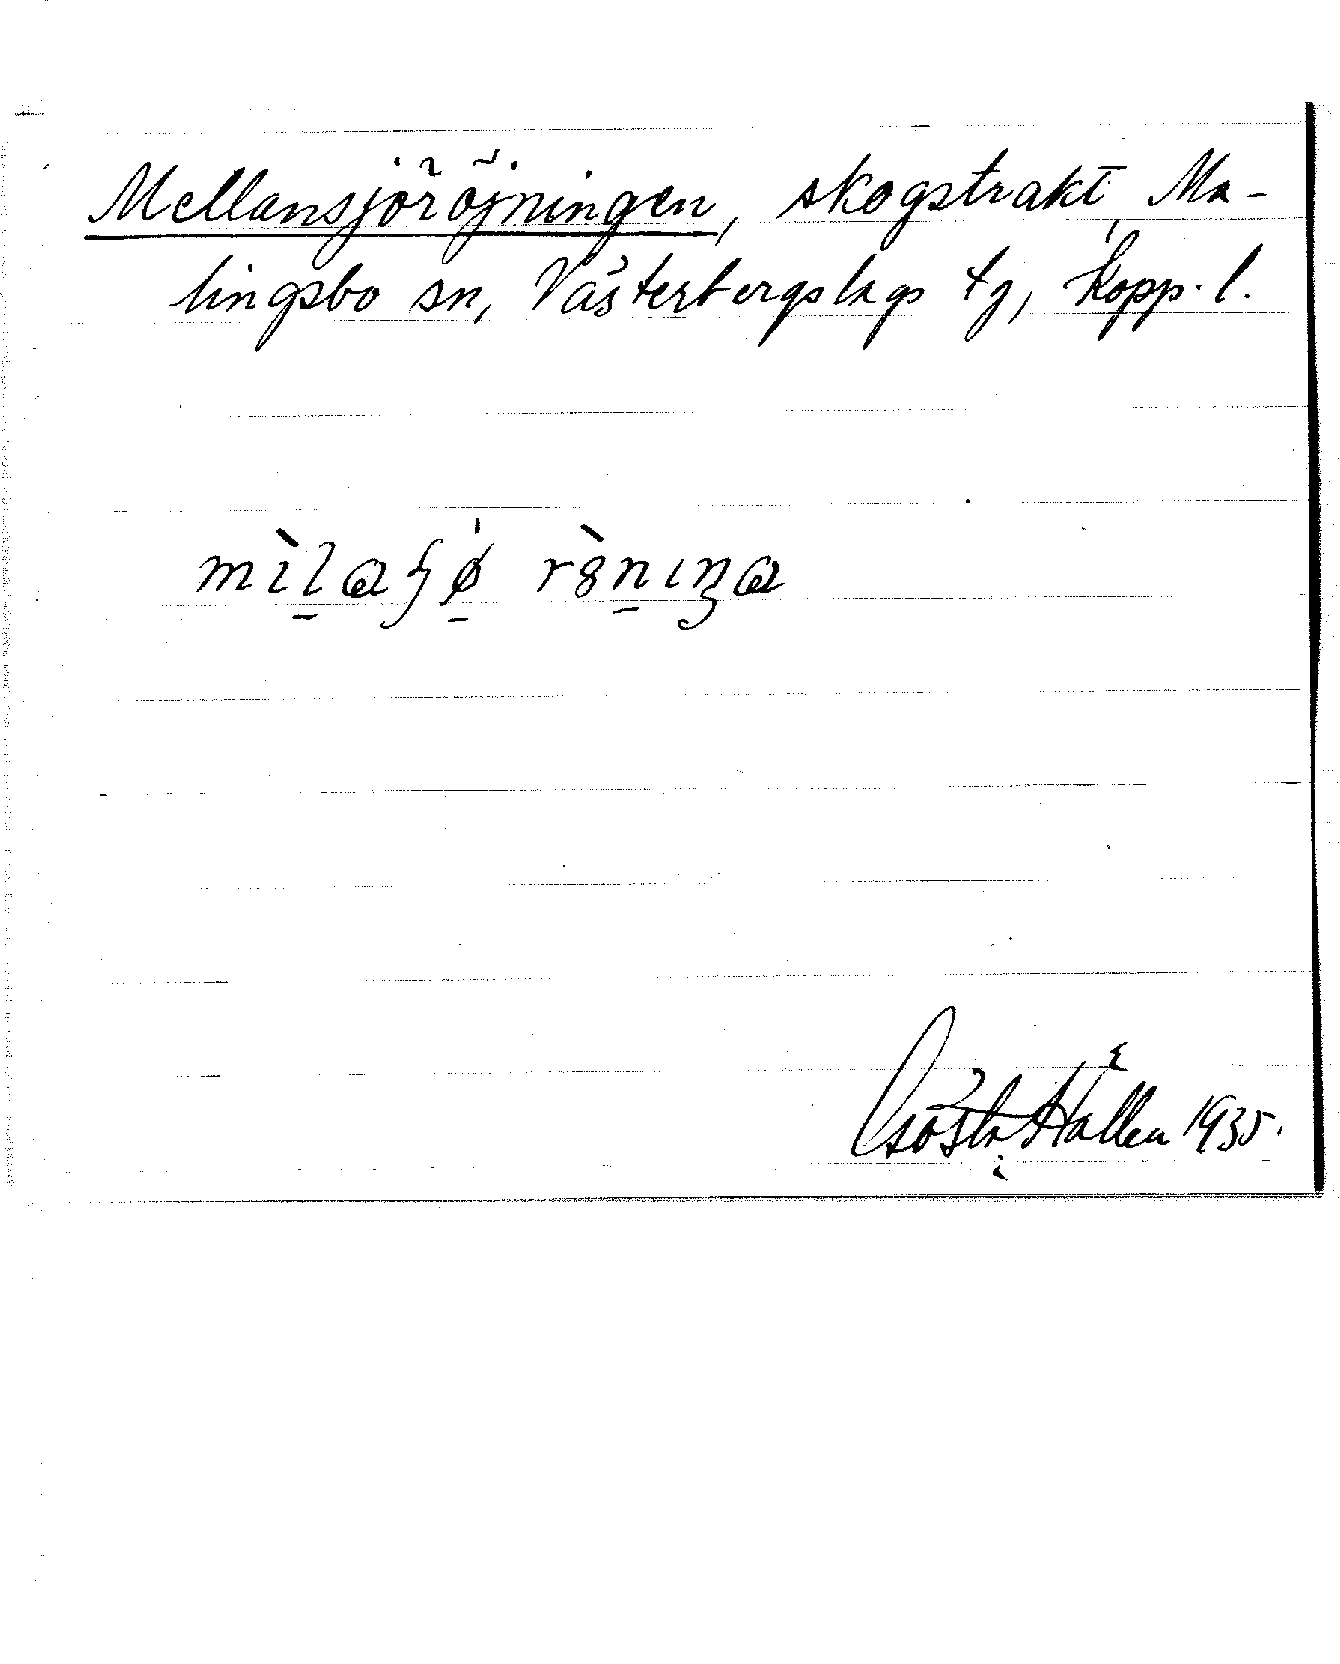 Mellansjöröjningen, skogstrakt, Ma-
lingsbo sn, Västerbergslags tg, Kopp. l.
Gösta Hallén 1935.